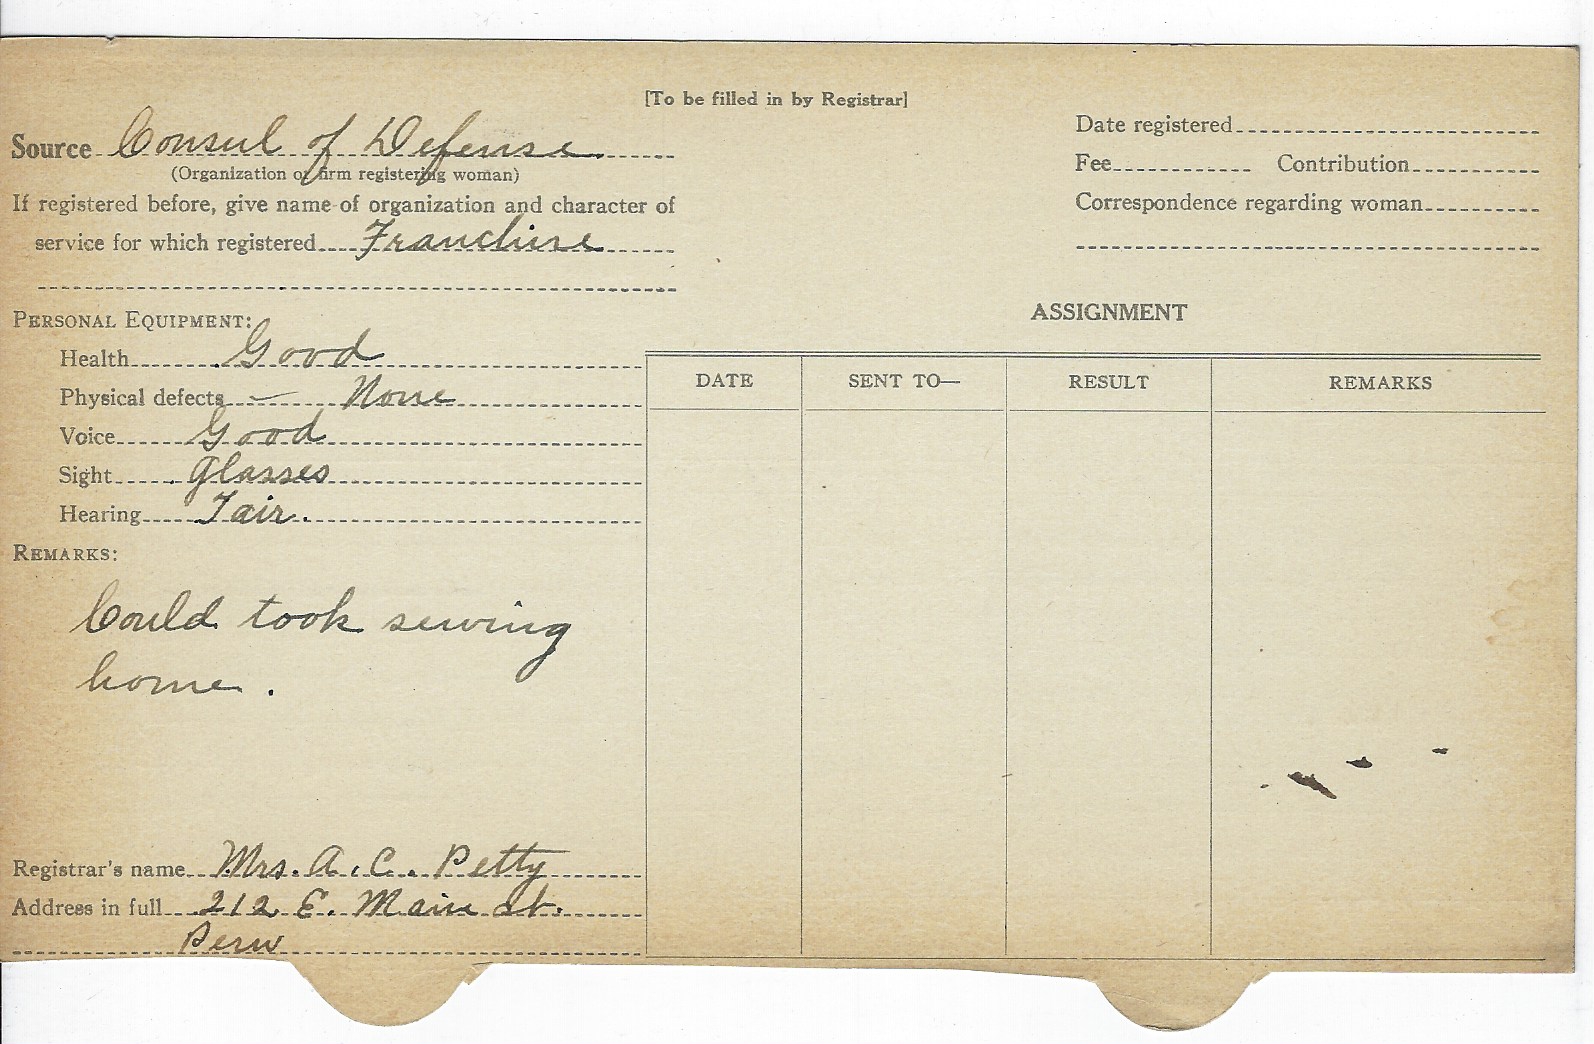 [To be filled in by Registrar]
Source Consul of Defense
(Organization or firm registering woman)
If registered before, give name of organization and character of
service for which registered Franchise
PERSONAL EQUIPMENT:
Health Good
Physical defects — None
Voice Good
Sight Glasses
Hearing Fair.
REMARKS:
Could took sewing
home.
Registrar's name Mrs. A. C. Petty
Address in full 212 E. Main St.
Peru
Date registered
Fee Contribution
Correspondence regarding woman
ASSIGNMENT
DATE SENT TO— RESULT REMARKS